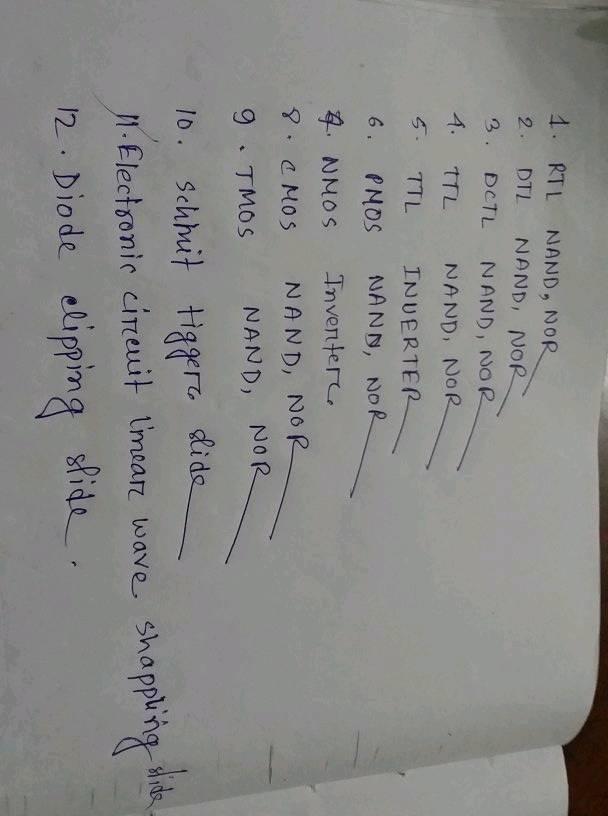 1. RTL NAND, NOR
2. DTL NAND, NOR
3. DCTL NAND, NOR
4. TTL NAND, NOR
5. TTL INVERTER
6. PMOS NAND, NOR
7. NMOS Inverter
8. CMOS NAND, NOR
9. TMOS NAND, NOR
10. Schmit tigger slide
11. Electronic circuit linear wave shappling slide
12. Diode clipping slide.